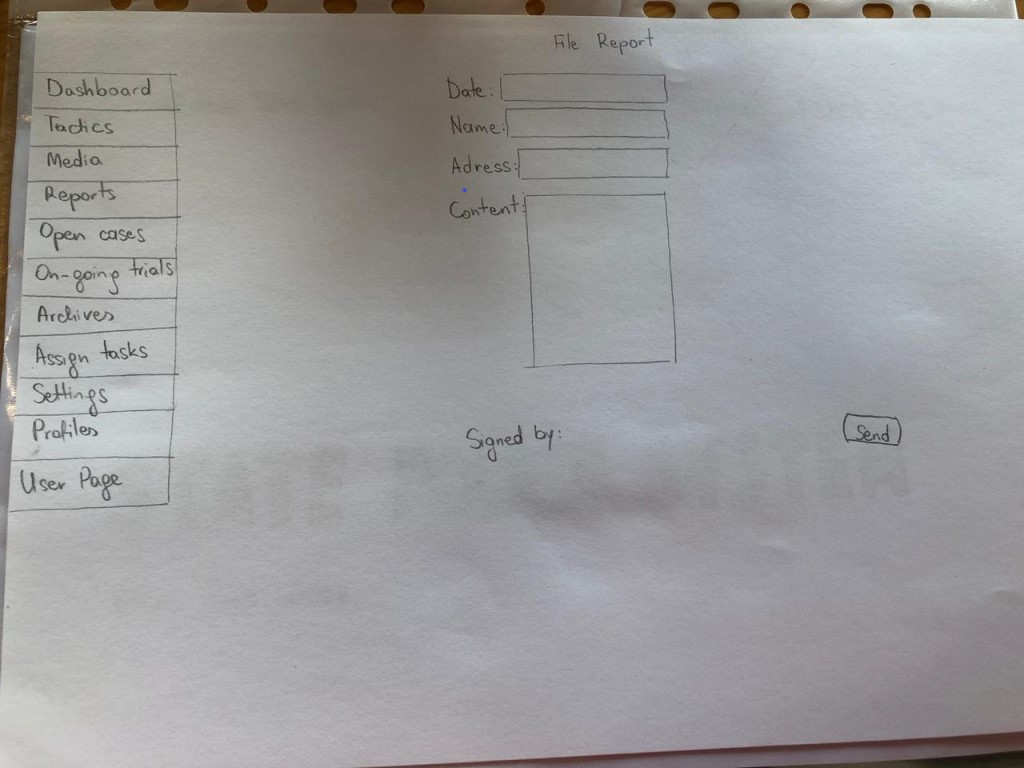 File Report
Dashboard
Tactics
Media
Reports
Open cases
On-going trials
Archives
Assign tasks
Settings
Profiles
User Page
Date:
Name:
Adress:
Content:
Signed by:
Send